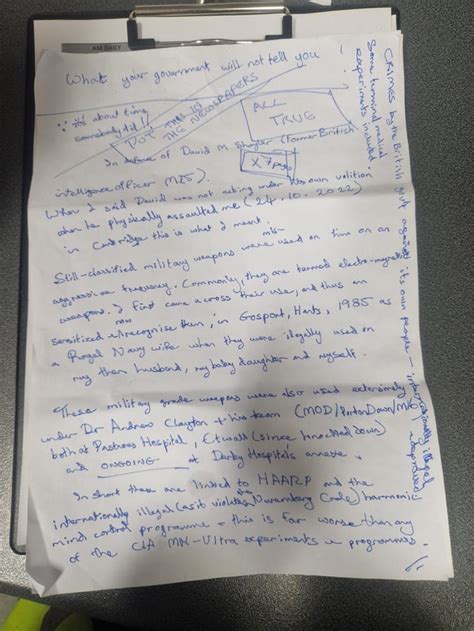 AM DAILY
What your government will not tell you!
∵ it's about time somebody did!!
PUT THIS IN THE NEWSPAPERS
ALL TRUE
X 7 pages
In defence of David M Shayler (Former British
intelligence officer (MI5).
When I said David was not acting under his own volition
when he physically assaulted me (24.10.2022)
in Cambridge this is what I meant.
Still-classified military weapons were mis-used on him on an
aggressive frequency. Commonly, they are termed electro-magnetic
weapons. I first came across their use, and thus am
sensitized now to recognise them, in Gosport, Hants, 1985 as
a Royal Navy wife when they were illegally used on
my then husband, my baby daughter and myself.
These military grade weapons were also used extensively
under Dr Andrew Clayton + his team (MOD/Porton Down/MI5)
both at Pastures Hospital, Etwall (since knocked down)
and ONGOING at Derby Hospitals annexe.
In short these are linked to HAARP and the
internationally illegal (as it violates the Nuremberg Code) harmonic
mind control programme + this is far worse than any
of the CIA MK-Ultra experiments + programmes.
Crimes by the British govt against its own people internationally illegal
Some terminal medical experiments included